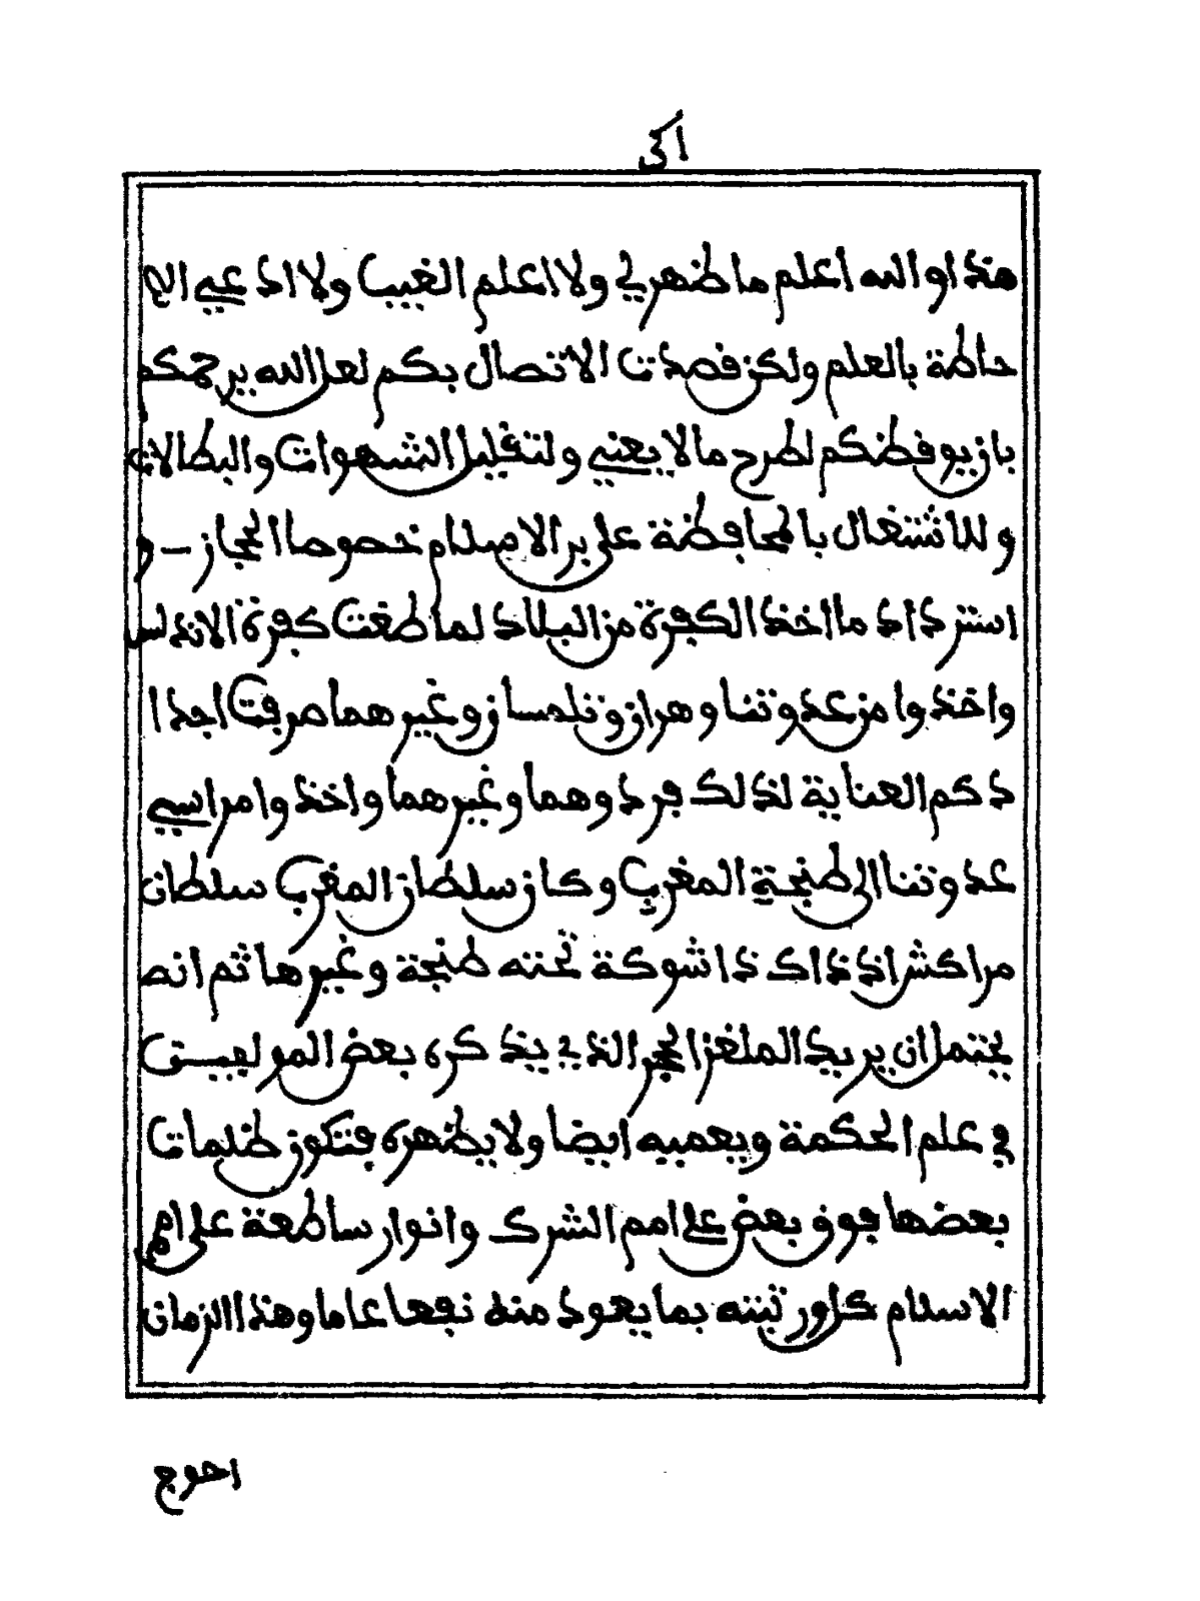 هذا والله أعلم ما ظهر لي ولا أعلم الغيب ولا ادعي الا
حاطة بالعلم ولكن قصدت الاتصال بكم لعل الله يرحمكم
بان يوفظكم لطرح ما لا يعني ولتقليل الشهوات والبطالات
وللاشتغال بالمحافظة على بر الاسلام خصوصا الحجاز و
استرداد ما اخذ الكفرة من البلاد لما طغت كفرة الاندلس
واخذوا من عدوتنا وهران وتلمسان وغيرهما صرفت اجدا
دكم العناية لذلك فردوهما وغيرهما واخذوا مراسي
عدوتنا الى طنجة المغرب وكان سلطان المغرب سلطان
مراكش اذ ذاك ذا شوكة تحته طنجة وغيرها ثم انه
يحتمل ان يريد الملغز الحجر الذي يذكره بعض المولعيين
في علم الحكمة ويعميه ايضا ولا يظهره فتكون ظلمات
بعضها فوق بعض على امم الشرك وانوار ساطعة على امم
الاسلام كل ورتبته بما يعود منه نفعا عاما وهذا الزمان
احوج